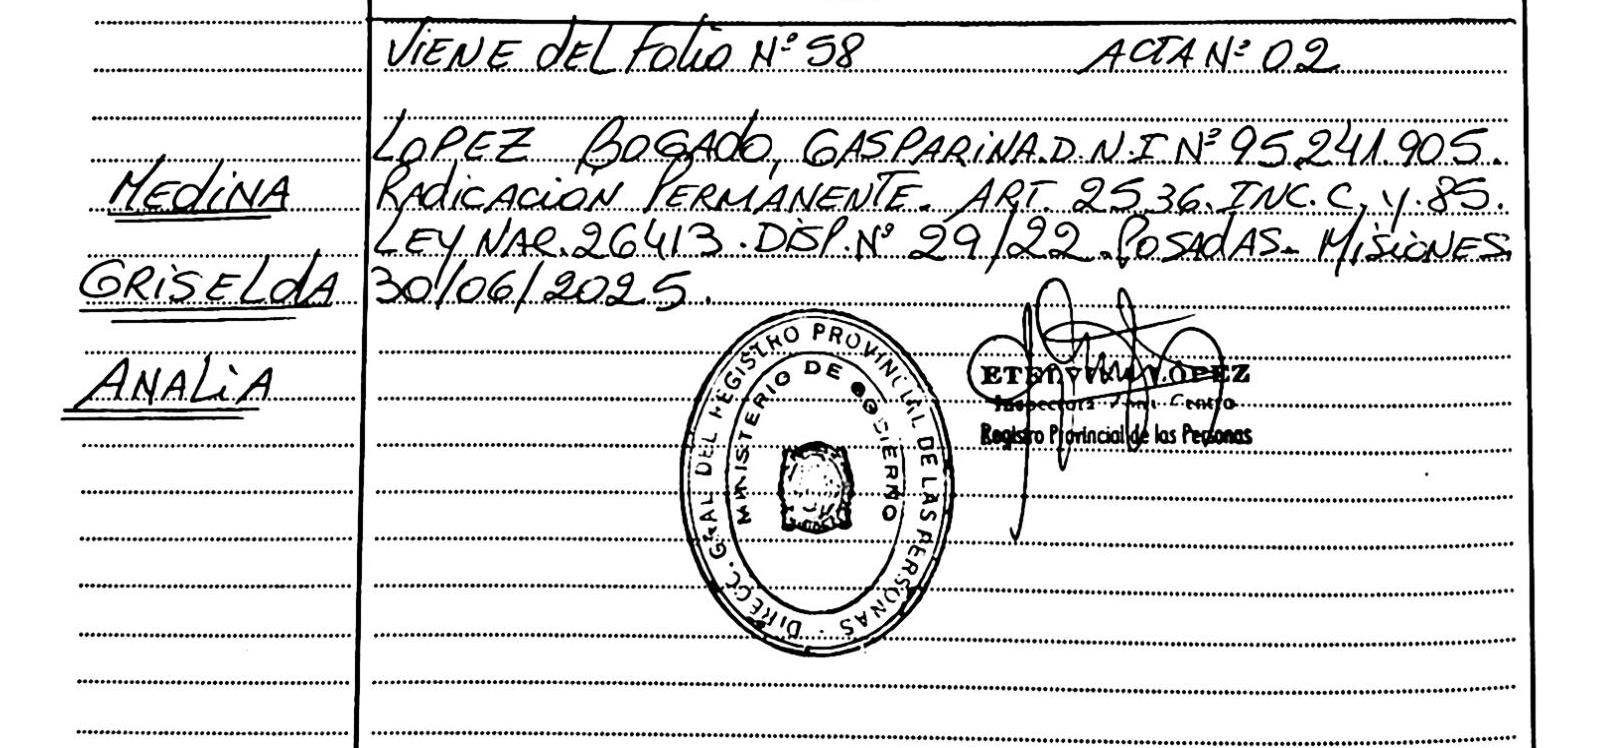 VIENE DEL FOLIO Nº 58 ACTA Nº 02
LOPEZ BOGADO, GASPARINA. D.N.I Nº 95.241.905.
MEDINA
RADICACIÓN PERMANENTE. ART. 25 36. INC. C. Y. 85.
LEY NAC. 26413. DISP. Nº 29/22. POSADAS - MISIONES.
GRISELDA
30/06/2025.
ANALIA
DIRECC. GRAL DEL REGISTRO PROVINCIAL DE LAS PERSONAS
MINISTERIO DE GOBIERNO
ETELVINA LOPEZ
Inspectora Zona Centro
Registro Provincial de las Personas